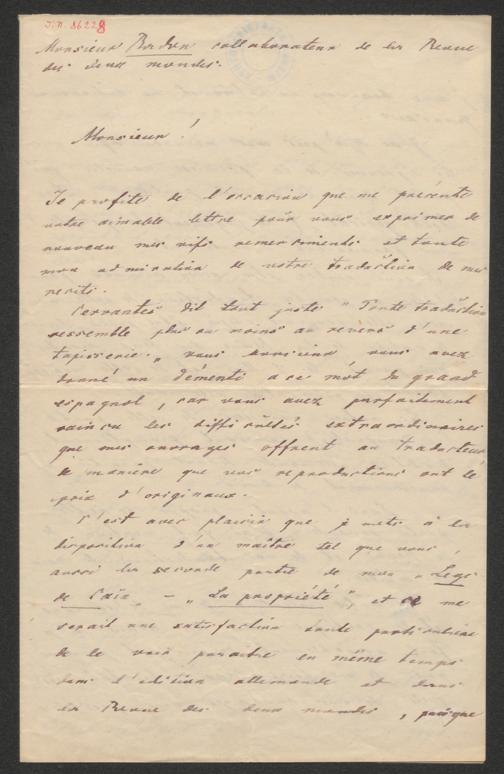 J.N. 86228
Monsieur Badon collaborateur de la Revue
des deux mondes.
Monsieur!
Je profite de l'occasion que me présente
votre aimable lettre pour vous exprimer de
nouveau mes vifs remerciments et toute
mon admiration de votre traduction de mes
recits.
Cervantes dit tout juste "Toute traduction
ressemble plus ou moins au revers d'une
tapisserie." vous monsieur, vous avez
donné un démenti a ce mot du grand
espagnol, car vous avez parfaitement
vaincu les difficultés extraordinaires
que mes ouvrages offrent au traducteur
de manière que vos reproductions ont le
prix d'originaux.
C'est avec plaisir que je mets à la
disposition d'un maître tel que vous,
aussi la seconde partie de mon „Legs
de Caïn„ – „La propriété", et ce me
serait une satisfaction toute particulière
de le voir paraitre en même temps
dans l'edition allemande et dans
la Revue des deux mondes, puisque